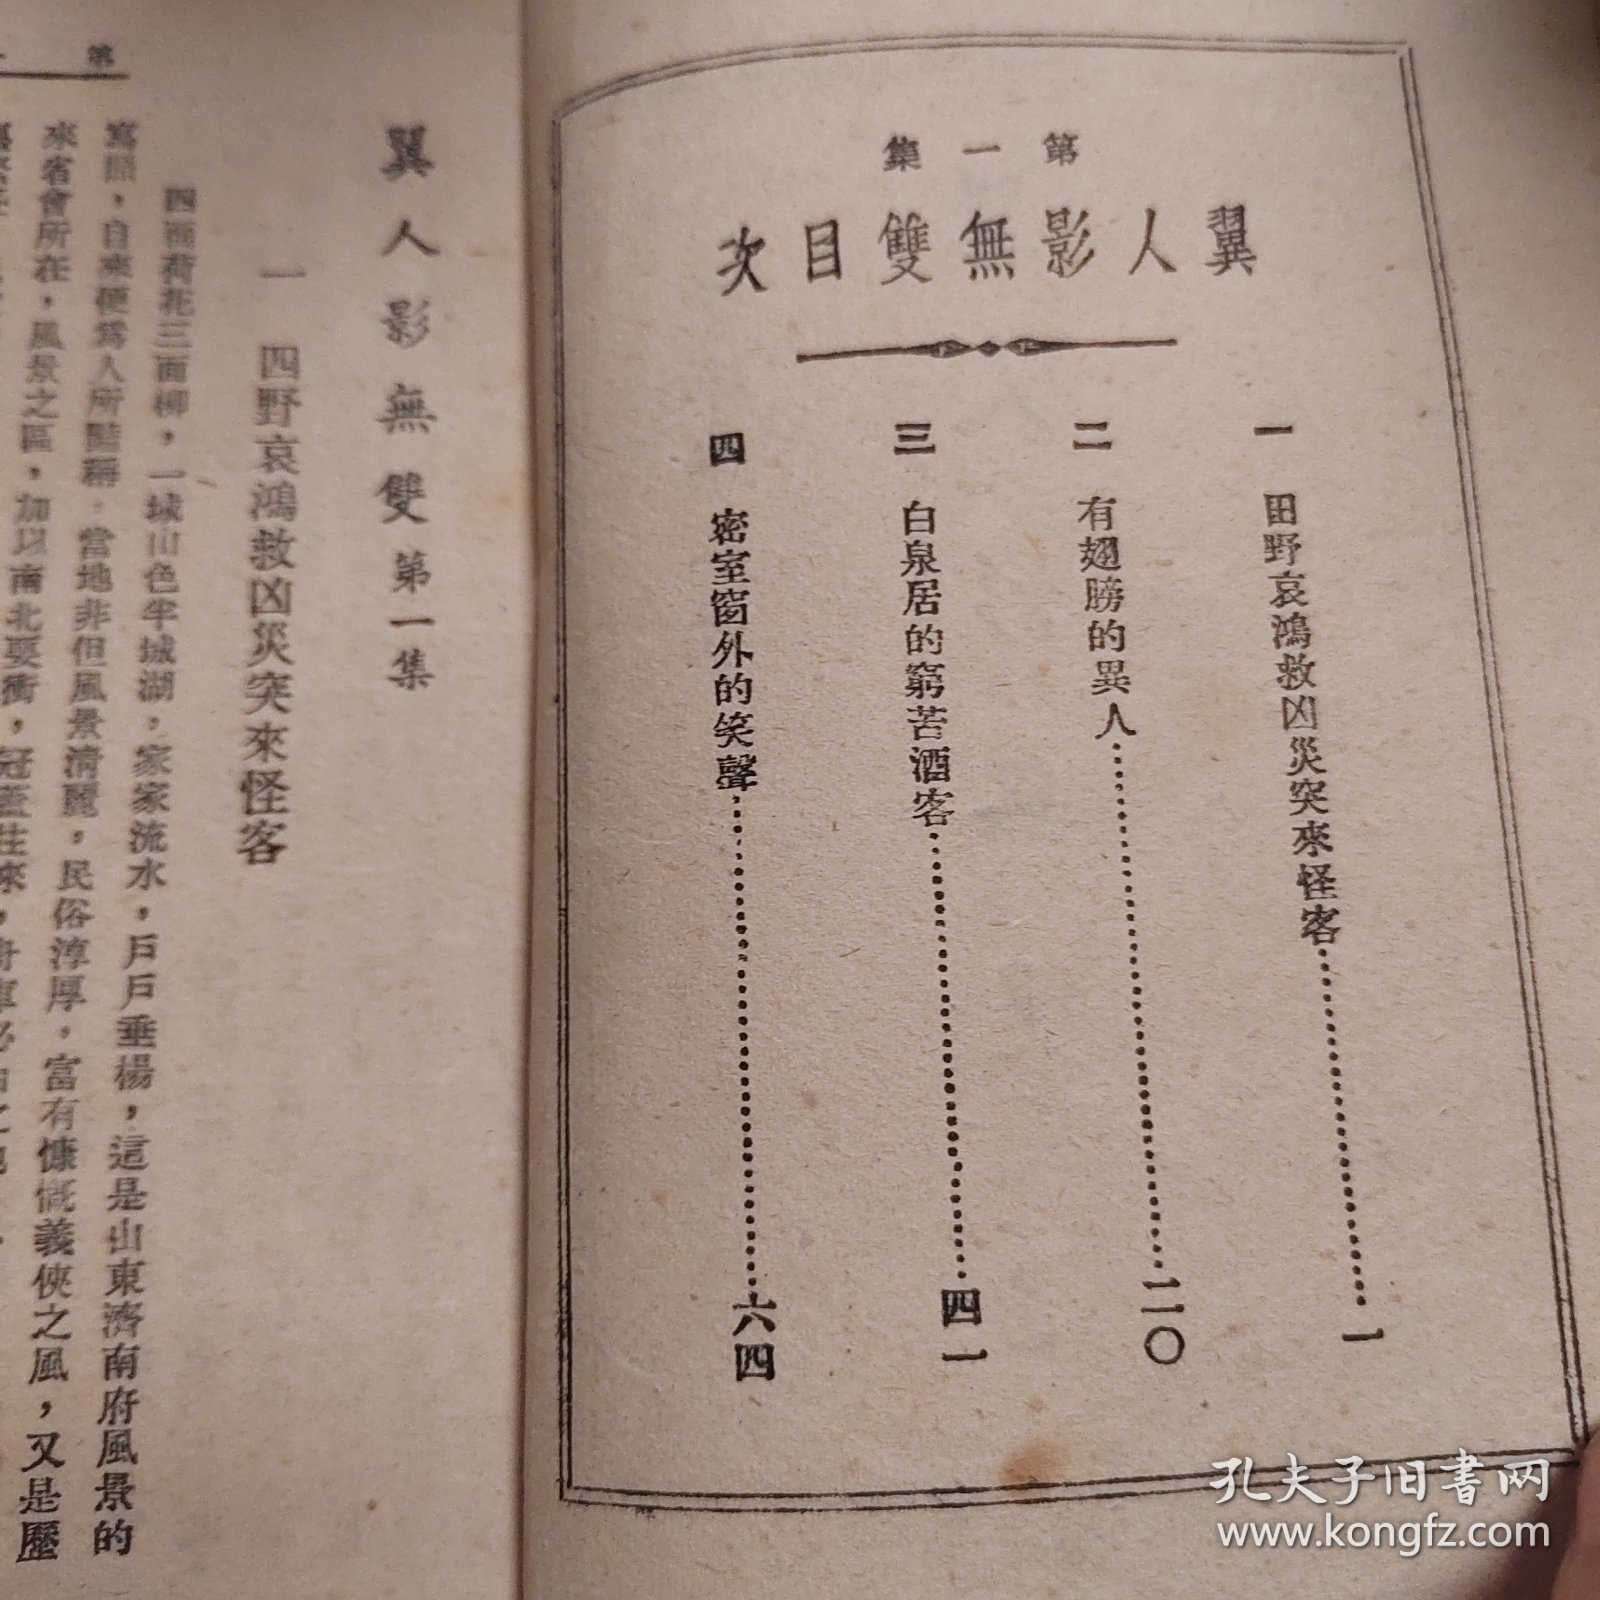 第一集
翼人影無雙目次
一 田野哀鴻救凶災突來怪客……一
二 有翅膀的異人……二〇
三 白泉居的窮苦酒客……四一
四 密室窗外的笑聲……六四
翼人影無雙第一集
一 四野哀鴻救凶災突來怪客
四面荷花三面柳，一城山色半城湖，家家流水，戶戶垂楊，這是山東濟南府風景的
寫照，自來便為人所豔稱，當地非但風景清麗，民俗淳厚，富有慷慨義俠之風，又是歷
來省會所在，風景之區，加以南北要衝，冠蓋往來，舟車必由之地
孔夫子旧書网
www.kongfz.com